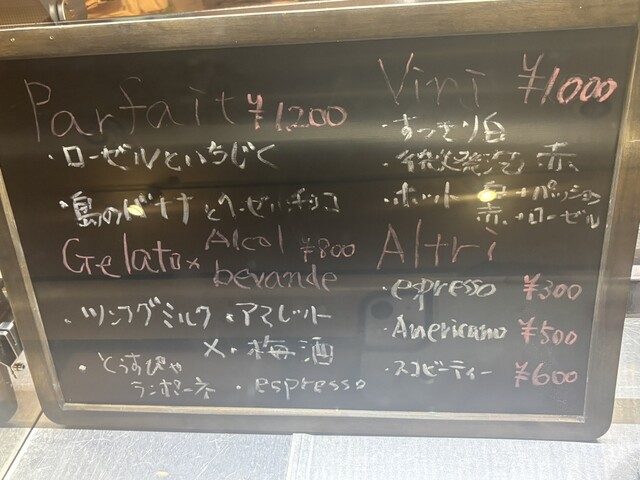 Parfait ¥1200
・ローゼルといちじく
・島のバナナとヘーゼルチョコ
Gelato× Alcol ¥800
bevande
・ツンフグミルク ・アマレット
× ・梅酒
・とうすぴゃ
ランポーネ ・espresso
Vini ¥1000
・すっきり白
・微発泡 赤
・ホット +パッション
赤+ローゼル
Altri
・espresso ¥300
・Americano ¥500
・スコビーティー ¥600